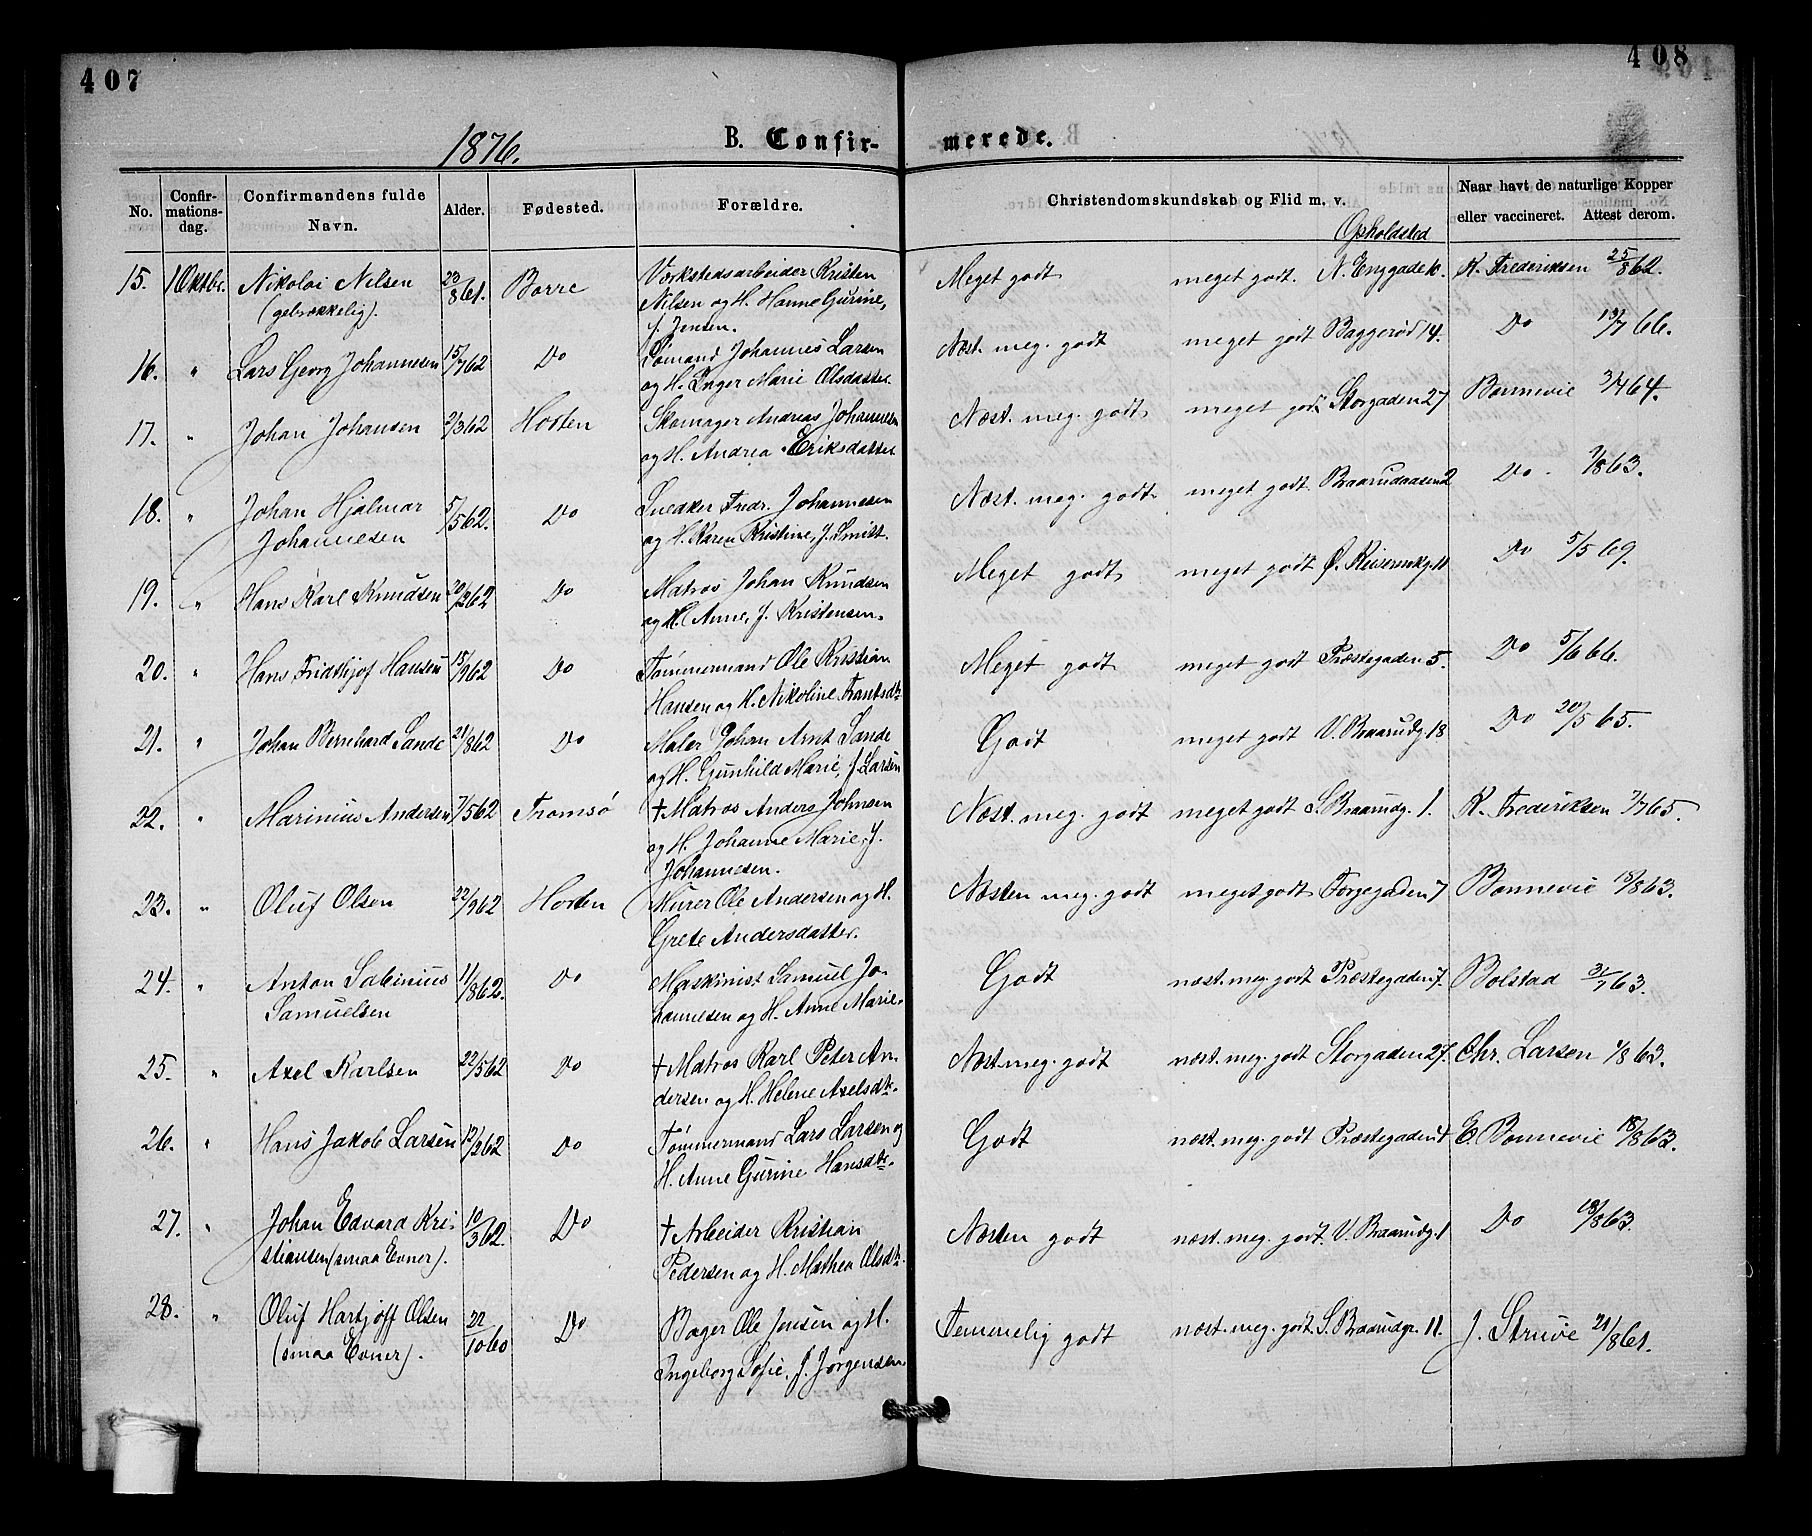 407
408
1876.
B. Confir-
merede.
No.
Confir-
mations-
dag.
Confirmandens fulde
Navn.
Alder.
Fødested.
Forældre.
Christendomskundskab og Flid m. v.
Opholdsted
Naar havt de naturlige Kopper
eller vaccineret. Attest derom.
15. 1 Oktbr. Nikolai Nilsen 23/8 61. Borre Værkstedsarbeider Kristen Meget godt meget godt. N. Enggade 10. K. Frederiksen 25/8 62.
(gebrækkelig). Nilsen og H. Hanne Gurine,
f. Jensen.
16. " Lars Georg Johannesen 15/7 62 Do Sømand Johannes Larsen Næst. meg. godt meget godt Baggerød 14. Do 13/7 66.
og H. Inger Marie Olsdatter.
17. " Johan Johansen 2/3 62 Horten Skomager Andreas Johannesen Næst. meg. godt meget godt Storgaden 27 Bonnevie 3/7 64.
og H. Andrea Eriksdatter
18. " Johan Hjalmar 5/5 62. Do Snedker Fredr. Johannesen Næst. meg. godt. meget godt. Braarudaasen 2 Do 7/8 63.
Johannesen og H. Karen Kristine, f. Smitt.
19. " Hans Karl Knudsen 20/2 62 Do Matros Johan Knudsen Meget godt meget godt Ø. Keiserenkg. 11 Do 5/5 69.
og H. Anne, f. Kristensen.
20. " Hans Fridthjof Hansen 15/9 62 Do Tømmermand Ole Kristian Meget godt meget godt Præstegaden 5. Do 5/6 66.
Hansen og H. Nikoline Frantsdtr.
21. " Johan Bernhard Sande 21/8 62 Do Maler Johan Arnt Sande Godt meget godt V. Braarudg. 18 Do 20/5 65.
og H. Gunhild Marie, f. Larsen
22. " Marinius Andersen 7/5 62 Tromsø † Matros Anders Johnsen Næst. meg. godt meget godt S. Braarudg. 1. K. Frederiksen 7/7 65.
og H. Johanne Marie, f.
Johannesen.
23. " Oluf Olsen 22/9 62 Horten Murer Ole Andersen og H. Næsten meg. godt meget godt Torgegaden 7 Bonnevie 18/8 63.
Grete Andersdatter.
24. " Anton Sabinius 11/8 62. Do Maskinist Samuel Jo- Godt næst. meg. godt Præstegaden 7. Bolstad 31/7 63.
Samuelsen hannesen og H. Anne Marie.
25. " Axel Karlsen 22/5 62 Do † Matros Karl Peter An- Næst. meg. godt næst. meg. godt Storgaden 27. Chr. Larsen 1/8 63.
dersen og H. Helene Axelsdtr.
26. " Hans Jakob Larsen 12/2 62 Do Tømmermand Lars Larsen og Godt næst. meg. godt Præstegaden E. Bonnevie 18/8 63.
H. Anne Gurine Hansdtr.
27. " Johan Edvard Kri- 10/3 62. Do † Arbeider Kristian Næsten godt næst. meg. godt. V. Braarudg. 1 Do 18/8 63.
stiansen (smaa Evner). Pedersen og H. Mathea Olsdtr.
28. " Oluf Hartjoff Olsen 22/10 60 Do Bager Ole Jensen og H. Temmelig godt næst. meg. godt. S. Braarudgr. 11. J. Struve 21/8 61.
(smaa Evner). Ingeborg Sofie, f. Jørgensen.